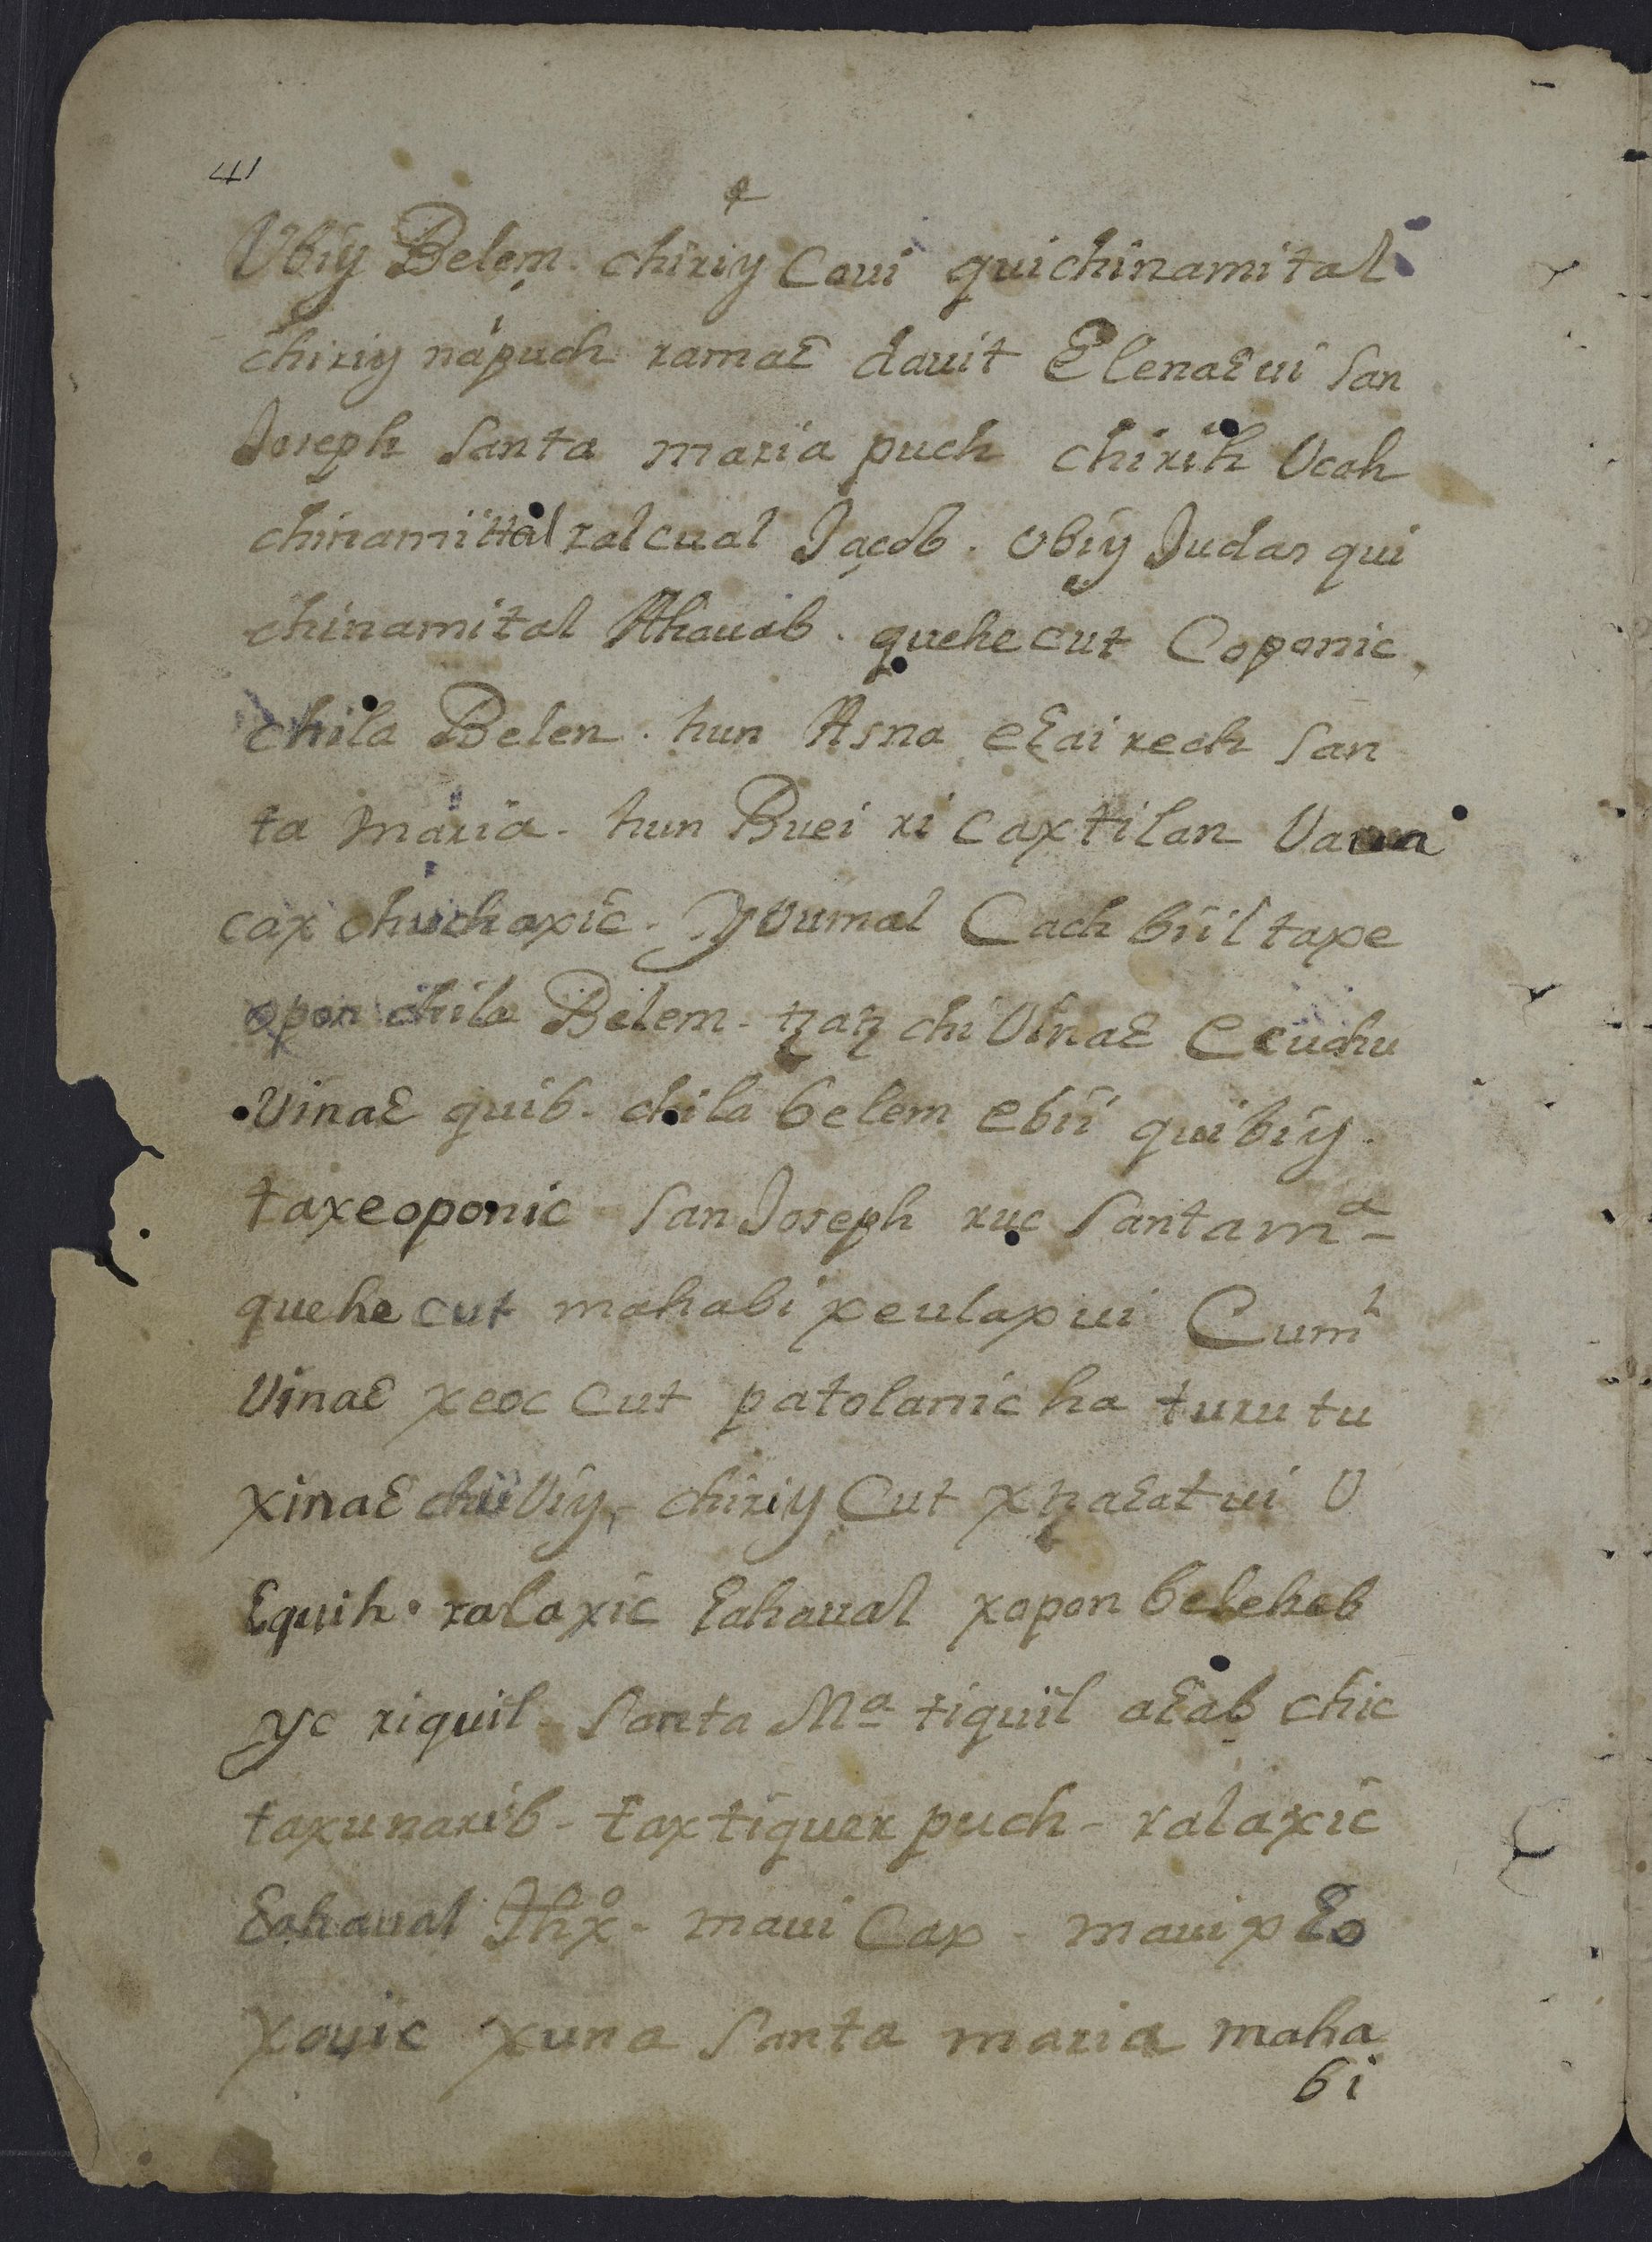 41
Ubiy Belem. chiriy Coui quichinamital
chiriy napuch ramaɛ dauit Elenaɛui San
Joseph Santa maria puch chirih Ucah
chinamittal ralcual Jacob. Ubiy Judas qui
chinamital Ahauab. quehe cut Coponic
chila Belen. hun Asna eɛai rech San
ta maria. hun Buei ri caxtilan Uacua
cax chuchaxic. Yuumal Cach biil taxe
opon chila Belem. tzatz chi Uinaɛ Ecuchu
Uinaɛ quib. chila belem ebii quibiy.
taxeoponic San Joseph ruc Santa mᵃ
quehe cut mahabi xeulaxui Cumˡ
Uinaɛ xeoc cut patolanic ha turutu
xinaɛ chiUiy, chiriy Cut xtzaɛatui U
ɛquih. ralaxic ɛahaual xopon beleheb
yc riquil Santa Mᵃ tiquiil aɛab chic
taxunarib - taxtiquer puch - ralaxic
ɛahaual Jhxº - maui Cax - maui xɛo
xouic xuna Santa maria maha
bi